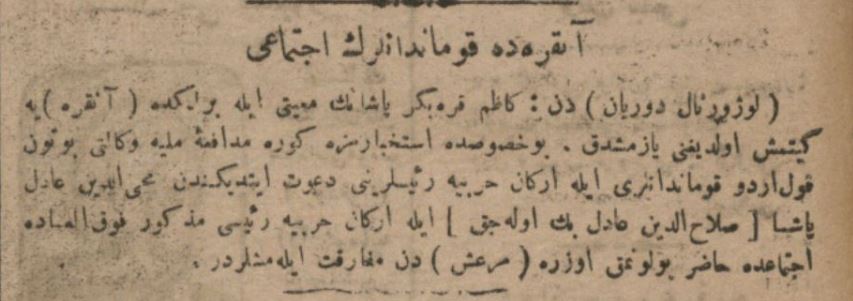 آنقره‌ده قوماندانلرك اجتماعی
( لوژورنال دوریان ) دن : كاظم قره‌بكر پاشانك معیتی ایله برلكده ( آنقره ) یه
كیتمش اولدیغنی یازمشدق . بوخصوصده استخبارمزه كوره مدافعهٔ ملیه وكالتی بوتون
قول‌اردو قوماندانلری ایله اركان حربیه رئیسلرینی دعوت ایتدیكندن محی‌الدین عادل
پاشا [ صلاح‌الدین عادل بك اوله‌جق ] ایله اركان حربیه رئیسی مذكور فوق‌العاده
اجتماعده حاضر بولونمق اوزره ( مرعش ) دن مفارقت ایله‌مشلردر .